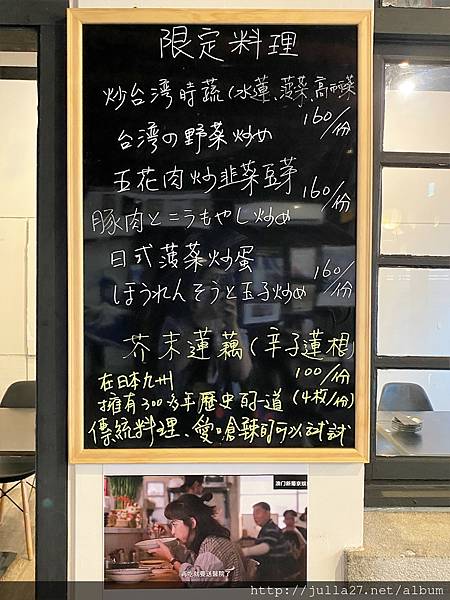 限定料理
炒台湾時蔬(水蓮、菠菜、高麗菜
160/份
台湾の野菜炒め
五花肉炒韮菜豆芽
160/份
豚肉とニラもやし炒め
日式菠菜炒蛋
160/份
ほうれんそうと玉子炒め
芥末蓮藕(辛子蓮根)
在日本九州
100/份
擁有300多年歷史的一道(4枚/份)
傳統料理、愛嗆辣的可以試試
再吃就要送醫院了
http://julla27.net/album